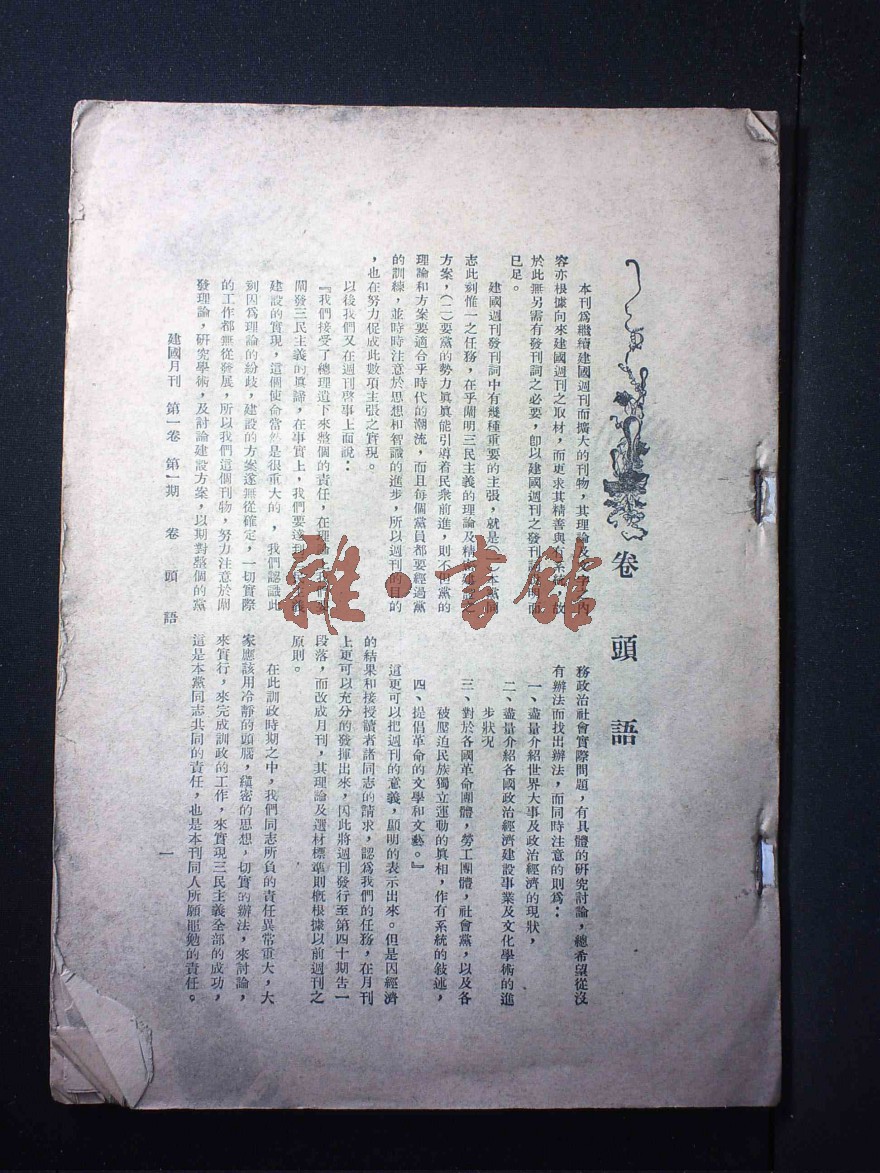 卷頭語
本刊爲繼續建國週刊而擴大的刊物，其理論及文字之內
容亦根據向來建國週刊之取材，而更求其精善與有 故
於此無另需有發刊詞之必要，卽以建國週刊之發刊詞 而
已足。
建國週刊發刊詞中有幾種重要的主張，就是（一）本黨同
志此刻惟一之任務，在乎闡明三民主義的理論及精密建設之
方案，（二）要黨的勢力眞眞能引導着民衆前進，則不但黨的
理論和方案要適合乎時代的潮流，而且每個黨員都要經過黨
的訓練，並時時注意於思想和智識的進步，所以週刊的目的
，也在努力促成此數項主張之實現。
以後我們又在週刊啓事上面說：
『我們接受了總理遺下來整個的責任，在理論上我們要
闡發三民主義的眞諦，在事實上，我們要達到 主義
建設的實現，這個使命當然是很重大的，我們認識此
刻因爲理論的紛歧，建設的方案遂無從確定，一切實際
的工作都無從發展，所以我們這個刊物，努力注意於闡
發理論，研究學術，及討論建設方案，以期對整個的黨
務政治社會實際問題，有具體的研究討論，總希望從沒
有辦法而找出辦法，而同時注意的則爲：
一、盡量介紹世界大事及政治經濟的現狀，
二、盡量介紹各國政治經濟建設事業及文化學術的進
步狀況
三、對於各國革命團體，勞工團體，社會黨，以及各
被壓迫民族獨立運動的眞相，作有系統的敍述，
四、提倡革命的文學和文藝。』
這更可以把週刊的意義，顯明的表示出來。但是因經濟
的結果和接授讀者諸同志的請求，認爲我們的任務，在月刊
上更可以充分的發揮出來，因此將週刊發行至第四十期告一
段落，而改成月刊，其理論及選材標準則概根據以前週刊之
原則。
在此訓政時期之中，我們同志所負的責任異常重大，大
家應該用冷靜的頭腦，縝密的思想，切實的辦法，來討論，
來實行，來完成訓政的工作，來實現三民主義全部的成功，
這是本黨同志共同的責任，也是本刊同人所願黽勉的責任。
建國月刊 第一卷 第一期 卷頭語 一
雜·書館